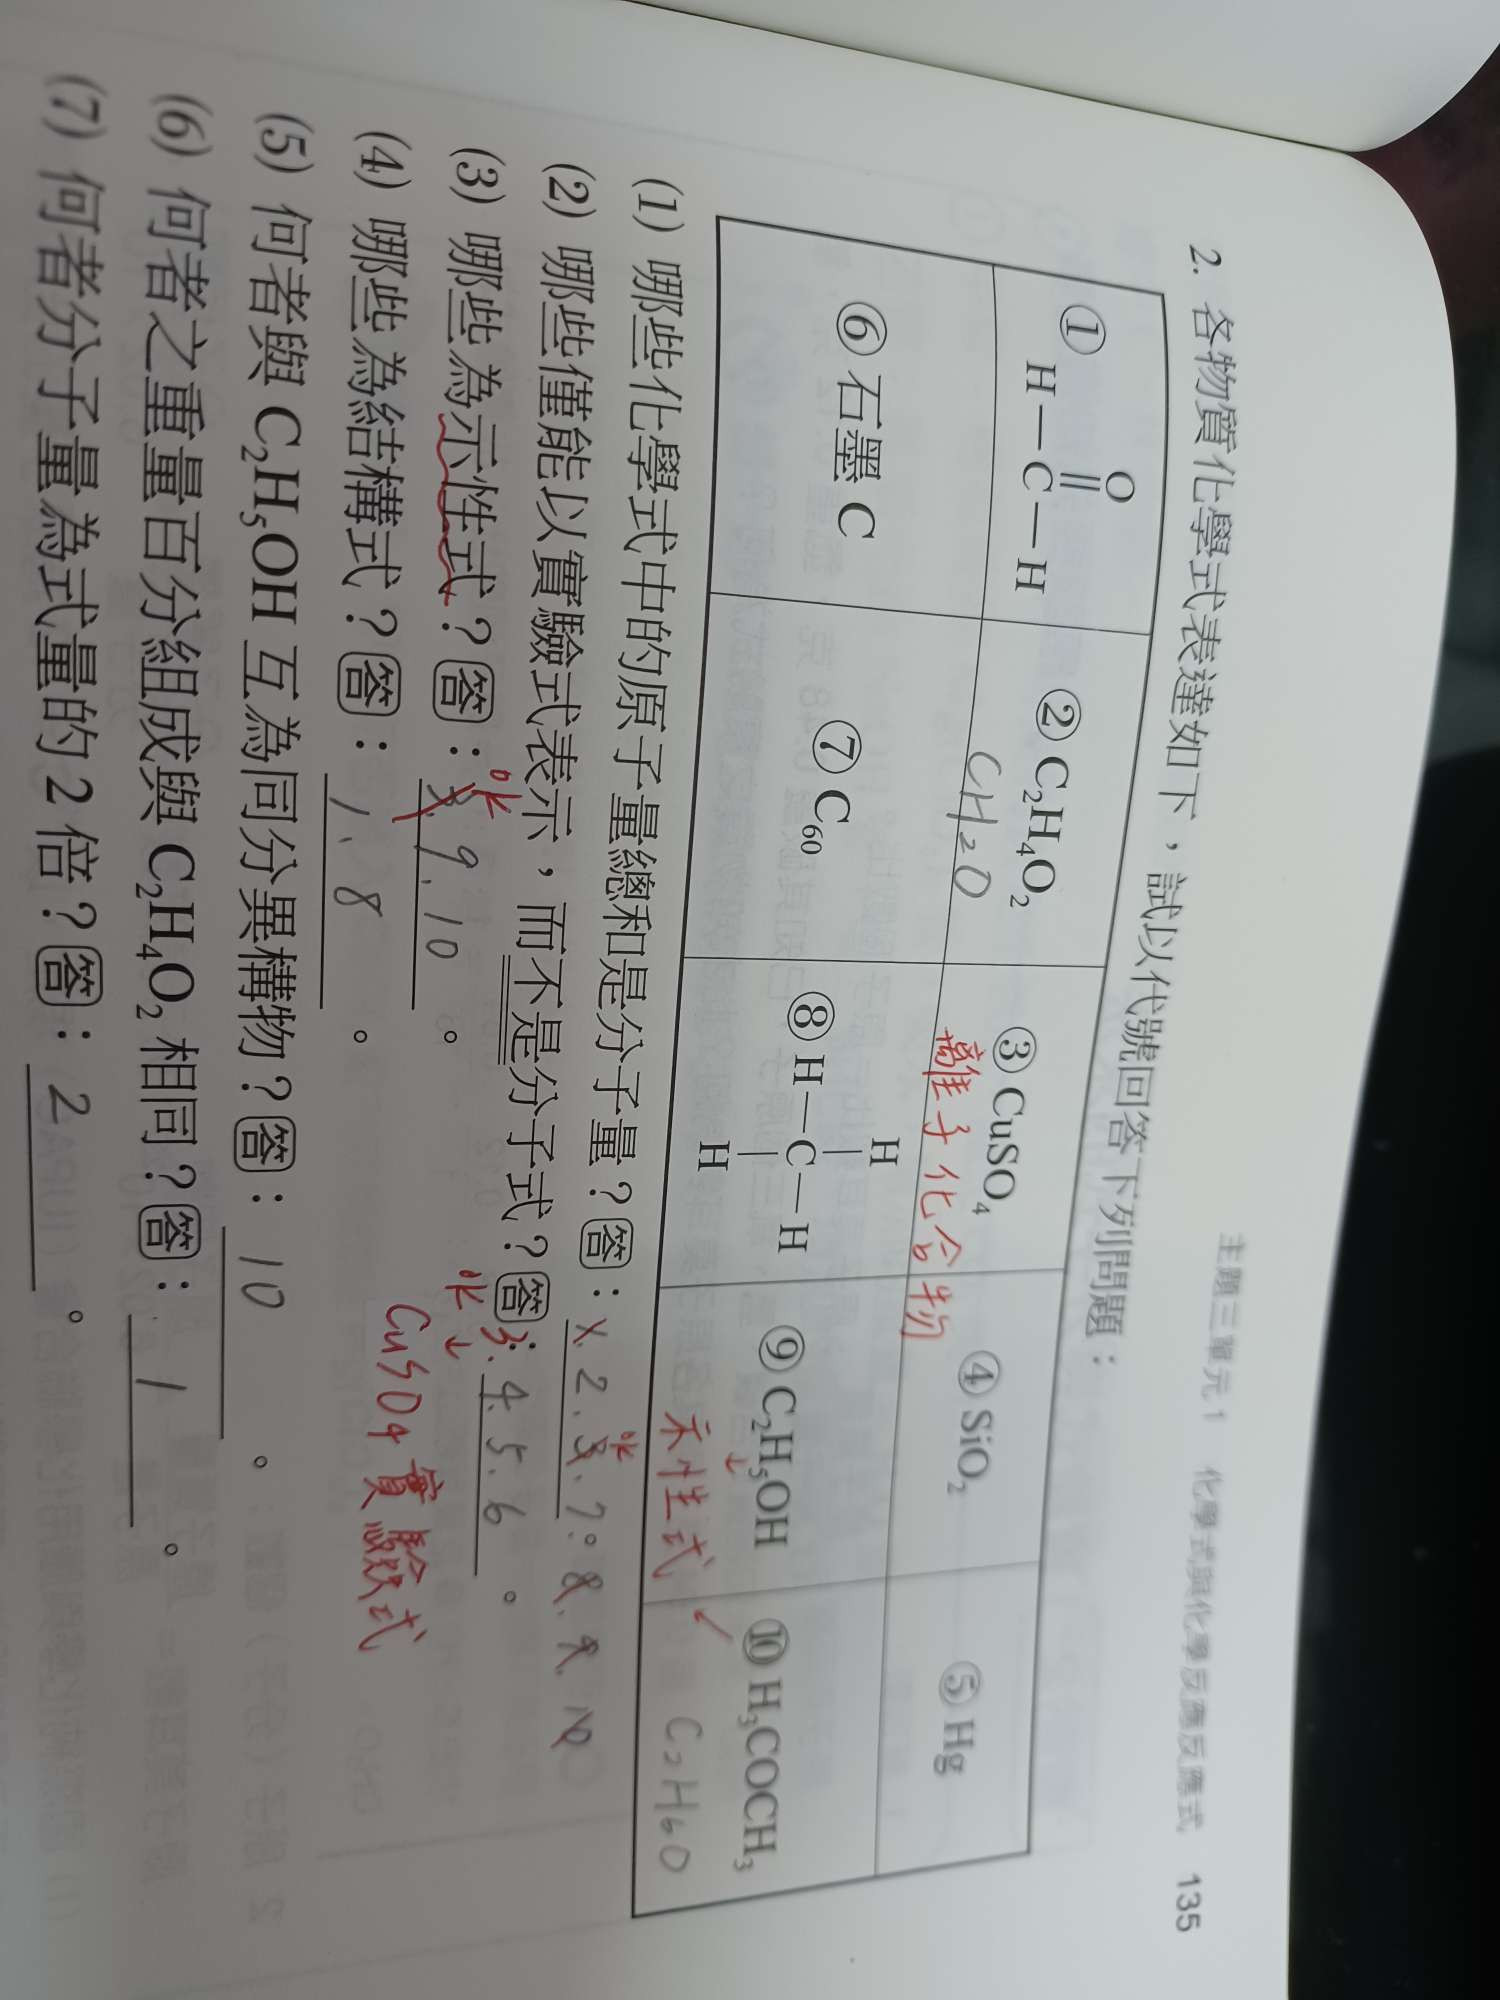 主題三單元1 化學式與化學反應反應式 135
2. 各物質化學式表達如下，試以代號回答下列問題：
O
||
① H－C－H
② C₂H₄O₂
CH₂O
③ CuSO₄
離子化合物
④ SiO₂
⑤ Hg
⑥ 石墨 C
⑦ C₆₀
H
|
⑧ H－C－H
|
H
⑨ C₂H₅OH
示性式
⑩ H₃COCH₃
C₂H₆O
(1) 哪些化學式中的原子量總和是分子量？答：1. 2. 3. 7. 8. 9. 10
(2) 哪些僅能以實驗式表示，而不是分子式？答：3. 4. 5. 6。
CuSO4 實驗式
(3) 哪些為示性式？答：3. 9. 10。
(4) 哪些為結構式？答：1、8。
(5) 何者與 C₂H₅OH 互為同分異構物？答：10。
(6) 何者之重量百分組成與 C₂H₄O₂ 相同？答：1。
(7) 何者分子量為式量的 2 倍？答：2。